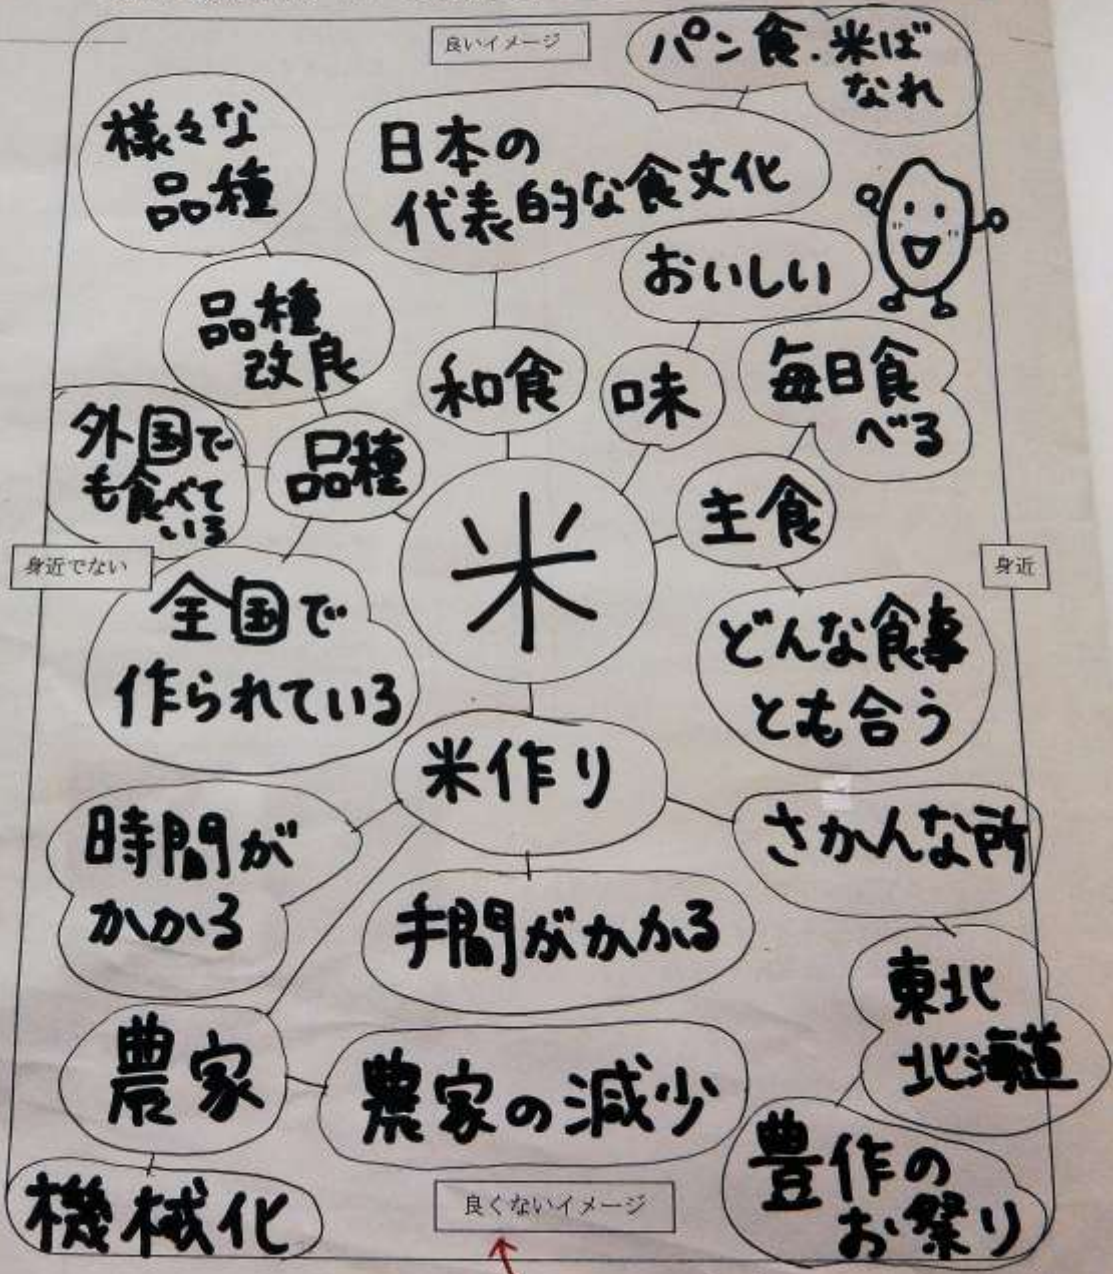 良いイメージ
パン食・米ば
なれ
様々な
品種
日本の
代表的な食文化
おいしい
品種
改良
和食
味
毎日食
べる
外国で
も食べて
いる
品種
米
主食
身近でない
身近
全国で
作られている
どんな食事
とも合う
米作り
時間が
かかる
手間がかかる
さかんな所
東北
北海道
農家
農家の減少
豊作の
お祭り
機械化
良くないイメージ